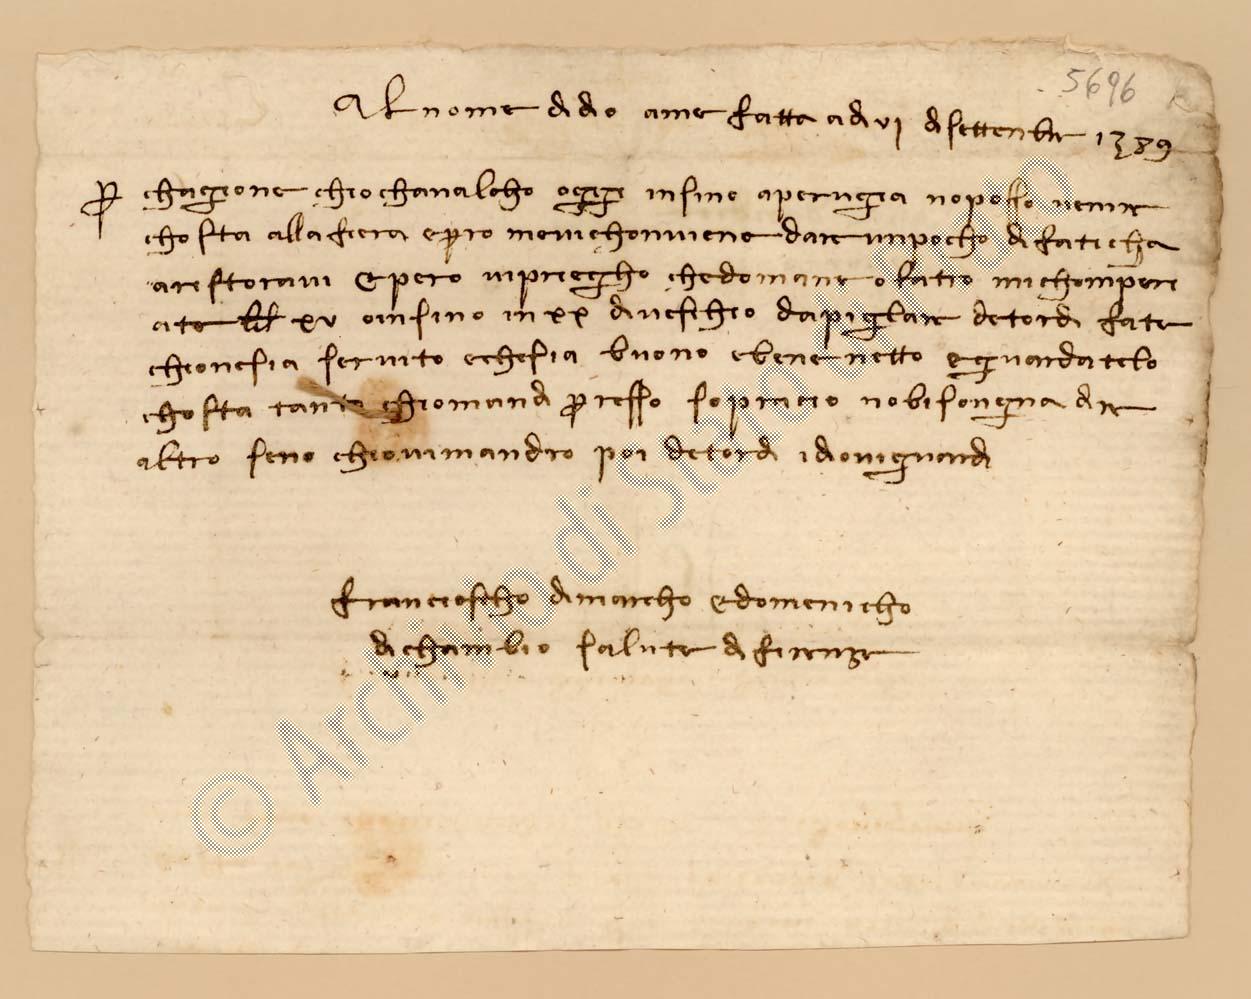 5696
Al nome di dio ame fatta adi vi di settenbre 1389
p chagione chio chavalcho oggi insino aperugia no posso venire
chosta alla fiera epro mevichonviene dare unpocho di faticha
arestoravi epero vipriegho chedomane olatro michonperi
ate lb xv oinsino in xx di veschio dapigliare detordi fate
chionesia servito echesia buono ebene netto eguardatelo
chosta tanto chiomandi p esso sopracio nobisongna dire
altro seno chiovimandro poi detordi idiovi guardi
francescho dimarcho edomenicho
dichanbio salute di firenze
© Archivio di Stato di Prato